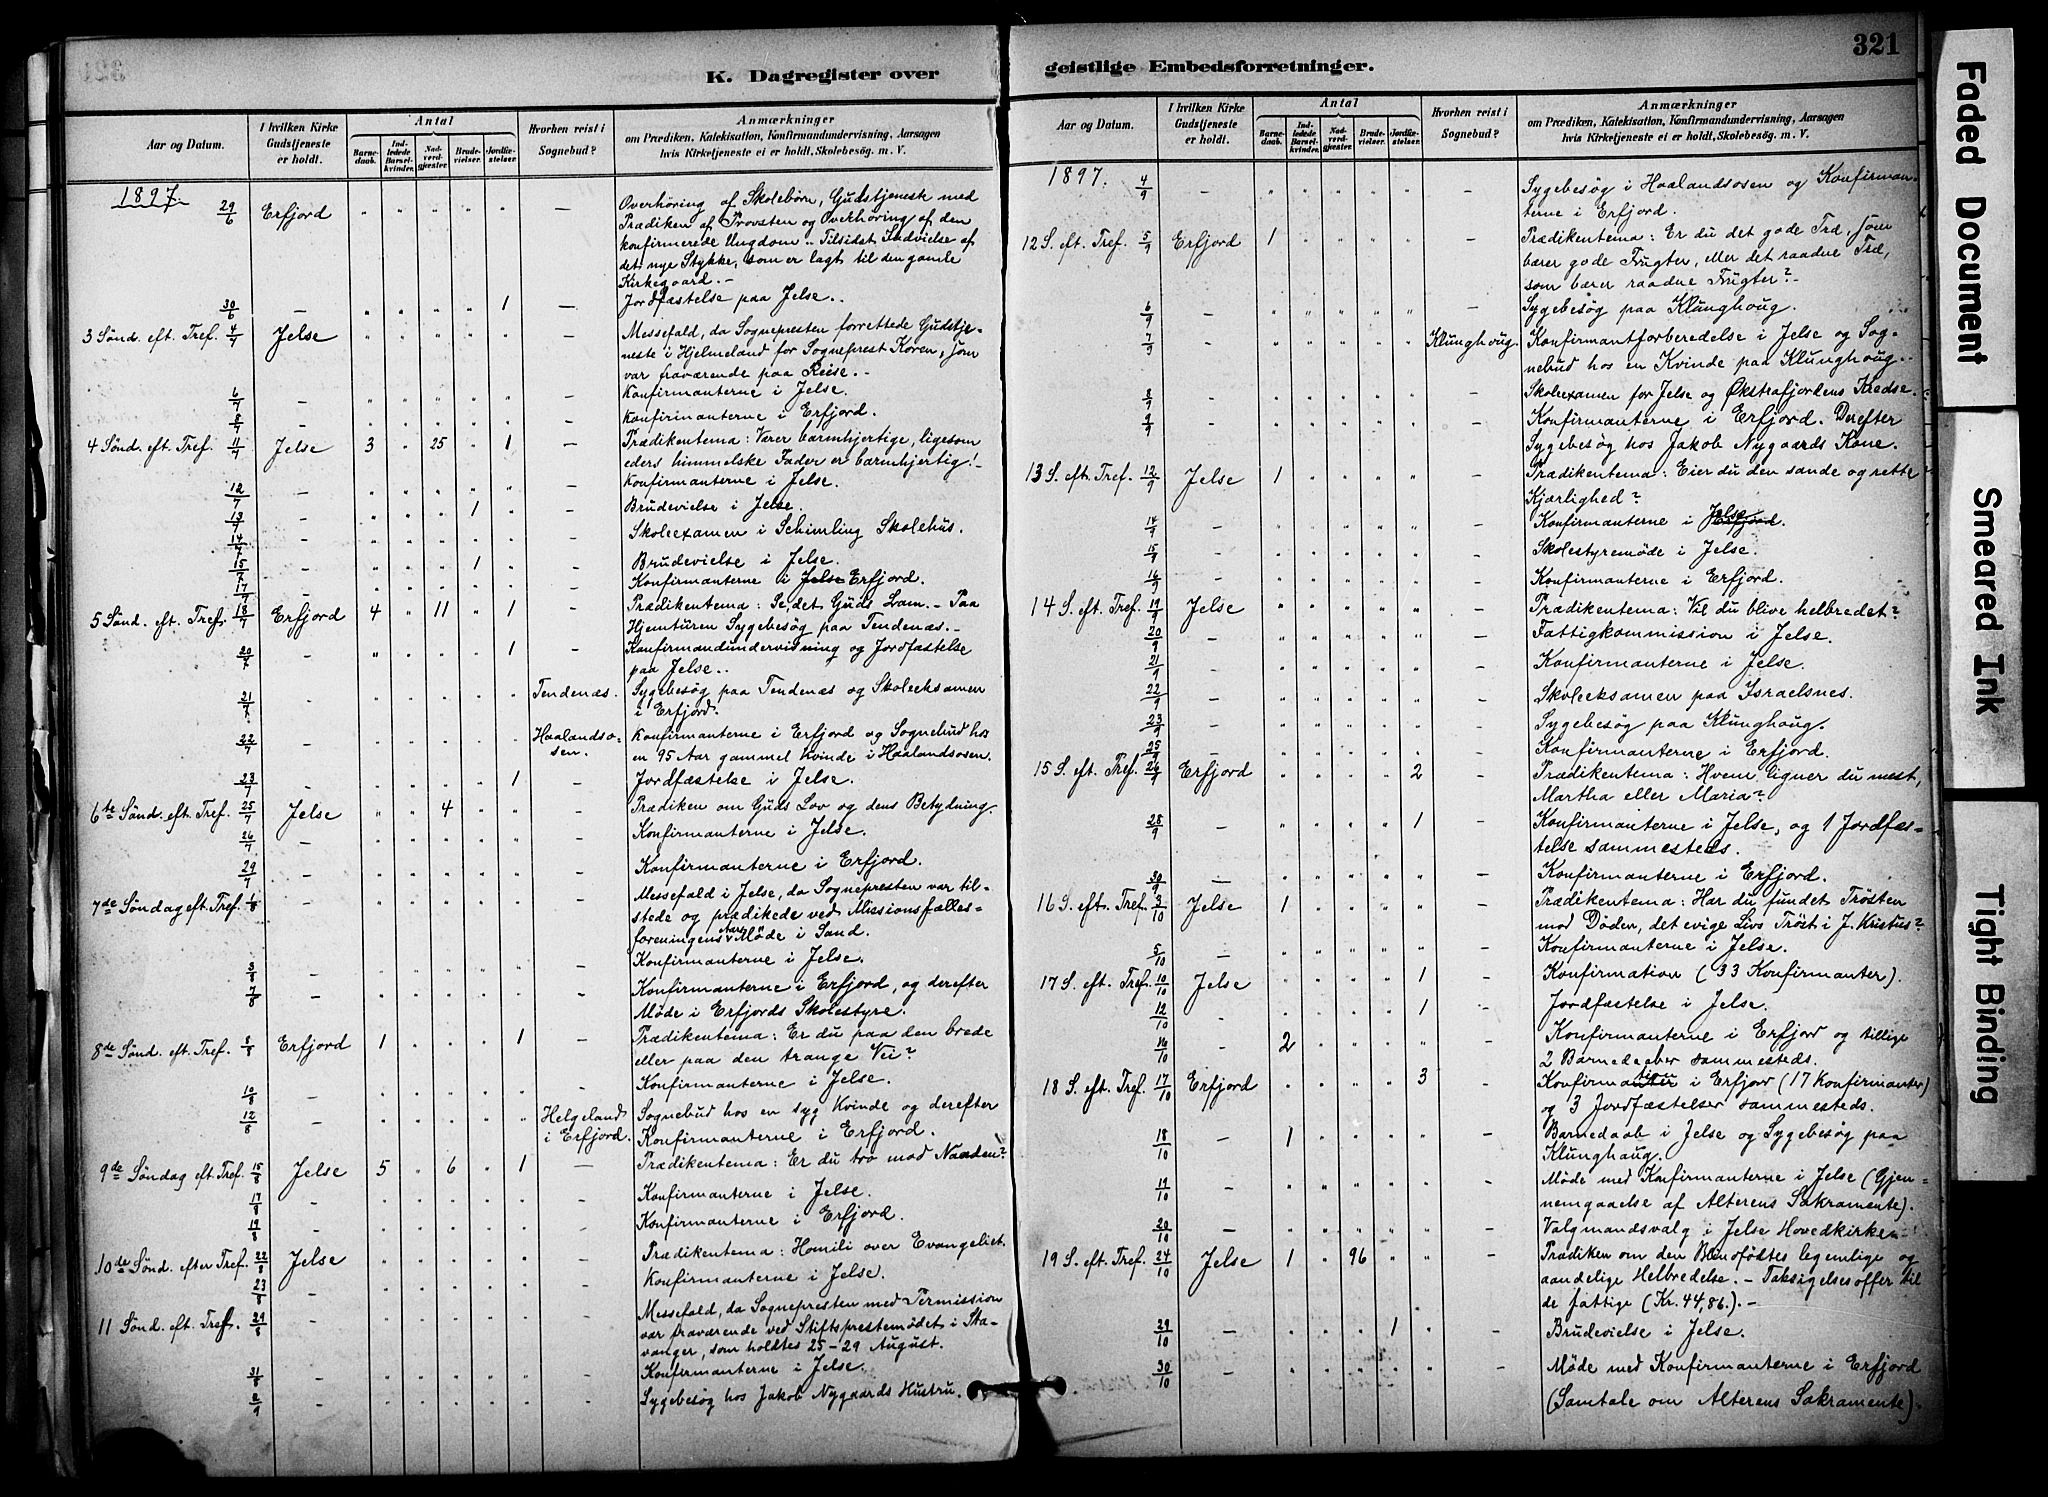 K. Dagregister over
Aar og Datum.
I hvilken Kirke Gudstjeneste er holdt.
Antal
Barnedaab. Indledede Barselkvinder. Nadverdgjæster. Brudevielser. Jordfæstelser.
Hvorhen reist i Sognebud?
Anmærkninger
om Prædiken, Katekisation, Konfirmandundervisning, Aarsagen
hvis Kirketjeneste ei er holdt, Skolebesøg. m. V.
1897.
29/6 Erfjord " " " " " — Overhøring af Skolebørn, Gudstjeneste med
Prædiken af Provsten og Overhøring af den
konfirmerede Ungdom. Tilsidst Indvielse af
det nye Stykke, som er lagt til den gamle
Kirkegaard. —
30/6 — " " " " 1 — Jordfæstelse paa Jelse.
3 Sønd. eft. Tref. 4/7 Jelse " " " " " — Messefald, da Sognepresten forrettede Gudstje-
neste i Hjelmeland for Sogneprest Koren, som
var fraværende paa Reise. —
6/7 — " " " " " — Konfirmanterne i Jelse.
8/7 — " " " " " — Konfirmanterne i Erfjord.
4 Sønd. eft. Tref. 11/7 Jelse 3 " 25 " 1 — Prædikentema: Værer barmhjertige, ligesom
eders himmelske Fader er barmhjertig! —
12/7 — " " " " " — Konfirmanterne i Jelse.
13/7 — " " " 1 " — Brudevielse i Jelse.
14/7 — " " " " " — Skoleexamen i Schimling Skolehus.
15/7 — " " " 1 " — Brudevielse i Jelse.
17/7 — " " " " " — Konfirmanterne i Jelse Erfjord.
5 Sønd. eft. Tref. 18/7 Erfjord 4 " 11 " 1 — Prædikentema: Se, det Guds Lam. — Paa
Hjemturen Sygebesøg paa Tendenæs. —
20/7 — " " " " 1 — Konfirmandundervisning og Jordfæstelse
paa Jelse.
21/7 — " " " " " Tendenæs. Sygebesøg paa Tendenæs og Skoleeksamen
i Erfjord.
22/7 — " " " " " Haalandso-
sen. Konfirmanterne i Erfjord og Sognebud hos
en 95 Aar gammel Kvinde i Haalandsosen.
23/7 — " " " " 1 — Jordfæstelse i Jelse.
6te Sønd. eft. Tref. 25/7 Jelse " " 4 " " — Prædiken om Guds Lov og dens Betydning.
26/7 — " " " " " — Konfirmanterne i Jelse.
29/7 — " " " " " — Konfirmanterne i Erfjord.
7de Søndag eft. Tref. 1/8 — " " " " " — Messefald i Jelse, da Sognepresten var til-
stede og prædikede ved Missionsfælles-
foreningens Aars Møde i Sand.
3/8 — " " " " " — Konfirmanterne i Jelse.
7/8 — " " " " " — Konfirmanterne i Erfjord, og derefter
Møde i Erfjords Skolestyre.
8de Sønd. eft. Tref. 8/8 Erfjord 1 " " " 1 — Prædikentema: Er du paa den brede
eller paa den trange Vei?
10/8 — " " " " " — Konfirmanterne i Jelse.
12/8 — " " " " " Helgeland
i Erfjord. Sognebud hos en syg Kvinde og derefter
Konfirmanterne i Erfjord.
9de Søndag eft. Tref. 15/8 Jelse 5 " 6 " 1 — Prædikentema: Er du tro mod Naaden?
17/8 — " " " " " — Konfirmanterne i Jelse.
19/8 — " " " " " — Konfirmanterne i Erfjord.
10de Sønd. efter Tref. 22/8 Jelse " " " " " — Prædikentema: Homili over Evangeliet.
23/8 — " " " " " — Konfirmanterne i Jelse.
11 Sønd. eft. Tref. 29/8 — " " " " " — Messefald, da Sognepresten med Permission
var fraværende ved Stiftsprestemødet i Sta-
vanger, som holdtes 25–29 August.
31/8 — " " " " " — Konfirmanterne i Jelse.
2/9 — " " " " " — Sygebesøg hos Jakob Nygaards Hustru.
geistlige Embedsforretninger.
321
Aar og Datum.
I hvilken Kirke Gudstjeneste er holdt.
Antal
Barnedaab. Indledede Barselkvinder. Nadverdgjæster. Brudevielser. Jordfæstelser.
Hvorhen reist i Sognebud?
Anmærkninger
om Prædiken, Katekisation, Konfirmandundervisning, Aarsagen
hvis Kirketjeneste ei er holdt, Skolebesøg. m. V.
1897. 4/9 — " " " " " — Sygebesøg i Haalandsosen og Konfirman-
terne i Erfjord.
12 S. eft. Tref. 5/9 Erfjord 1 " " " " — Prædikentema: Er du det gode Træ, som
bærer gode Frugter, eller det raadne Træ,
som bærer raadne Frugter? —
6/9 — " " " " " Sygebesøg paa Klunghoug.
7/9 — " " " " " Klunghoug. Konfirmantforberedelse i Jelse og Sog-
nebud hos en Kvinde paa Klunghoug.
8/9 — " " " " " — Skoleexamen for Jelse og Økstrafjordens Kredse.
9/9 — " " " " " — Konfirmanterne i Erfjord. Derefter
Sygebesøg hos Jakob Nygaards Kone.
13 S. eft. Tref. 12/9 Jelse 1 " " " " — Prædikentema: Eier du den sande og rette
Kjærlighed?
14/9 — " " " " " — Konfirmanterne i Erfjord Jelse.
15/9 — " " " " " — Skolestyremøde i Jelse.
16/9 — " " " " " — Konfirmanterne i Erfjord.
14 S. eft. Tref. 19/9 Jelse " " " " " — Prædikentema: Vil du blive helbredet?
20/9 — " " " " " — Fattigkommission i Jelse.
21/9 — " " " " " — Konfirmanterne i Jelse.
22/9 — " " " " " — Skoleeksamen paa Israelsnes.
23/9 — " " " " " — Sygebesøg paa Klunghoug.
25/9 — " " " " " — Konfirmanterne i Erfjord.
15 S. eft. Tref. 26/9 Erfjord " " " " 2 — Prædikentema: Hvem ligner du mest,
Martha eller Maria?
28/9 — " " " " 1 — Konfirmanterne i Jelse, og 1 Jordfæs-
telse sammesteds.
30/9 — " " " " " — Konfirmanterne i Erfjord.
16 S. eft. Tref. 3/10 Jelse 1 " " " " — Prædikentema: Har du fundet Trøsten
mod Døden, det evige Livs Trøst i J. Kristus?
5/10 — " " " " " — Konfirmanterne i Jelse.
17 S. eft. Tref. 10/10 Jelse " " " " 1 — Konfirmation (33 Konfirmanter).
12/10 — " " " " 1 — Jordfæstelse i Jelse.
16/10 — 2 " " " " — Konfirmanterne i Erfjord og tillige
2 Barnedaaber sammesteds.
18 S. eft. Tref. 17/10 Erfjord " " " " 3 — Konfirmation i Erfjord (17 Konfirmanter)
og 3 Jordfæstelser sammesteds.
18/10 — 1 " " " " — Barnedaab i Jelse og Sygebesøg paa
Klunghaug.
19/10 — " " " " " — Møde med Konfirmanterne i Jelse (Gjen-
nemgaaelse af Alterens Sakramente).
20/10 — " " " " " — Valgmandsvalg i Jelse Hovedkirke.
19 S. eft. Tref. 24/10 Jelse 1 " 96 " " — Prædiken om den Blindfødtes legemlige og
aandelige Helbredelse. — Taksigelsesoffer til
de fattige (Kr. 44,86.). —
29/10 — " " " 1 " — Brudevielse i Jelse.
30/10 — " " " " " — Møde med Konfirmanterne i Erfjord
(Samtale om Alterens Sakramente).
Faded Document
Smeared Ink
Tight Binding